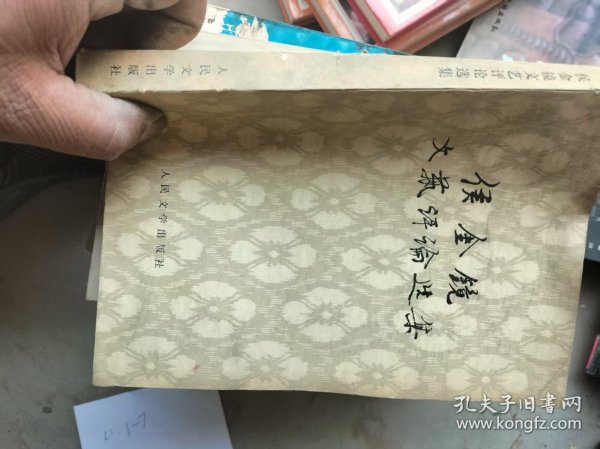 侯金镜
文艺评论选集
人民文学出版社
侯金镜文艺评论选集
人民文学出版社
4-1-7
孔夫子旧书网
www.kongfz.com